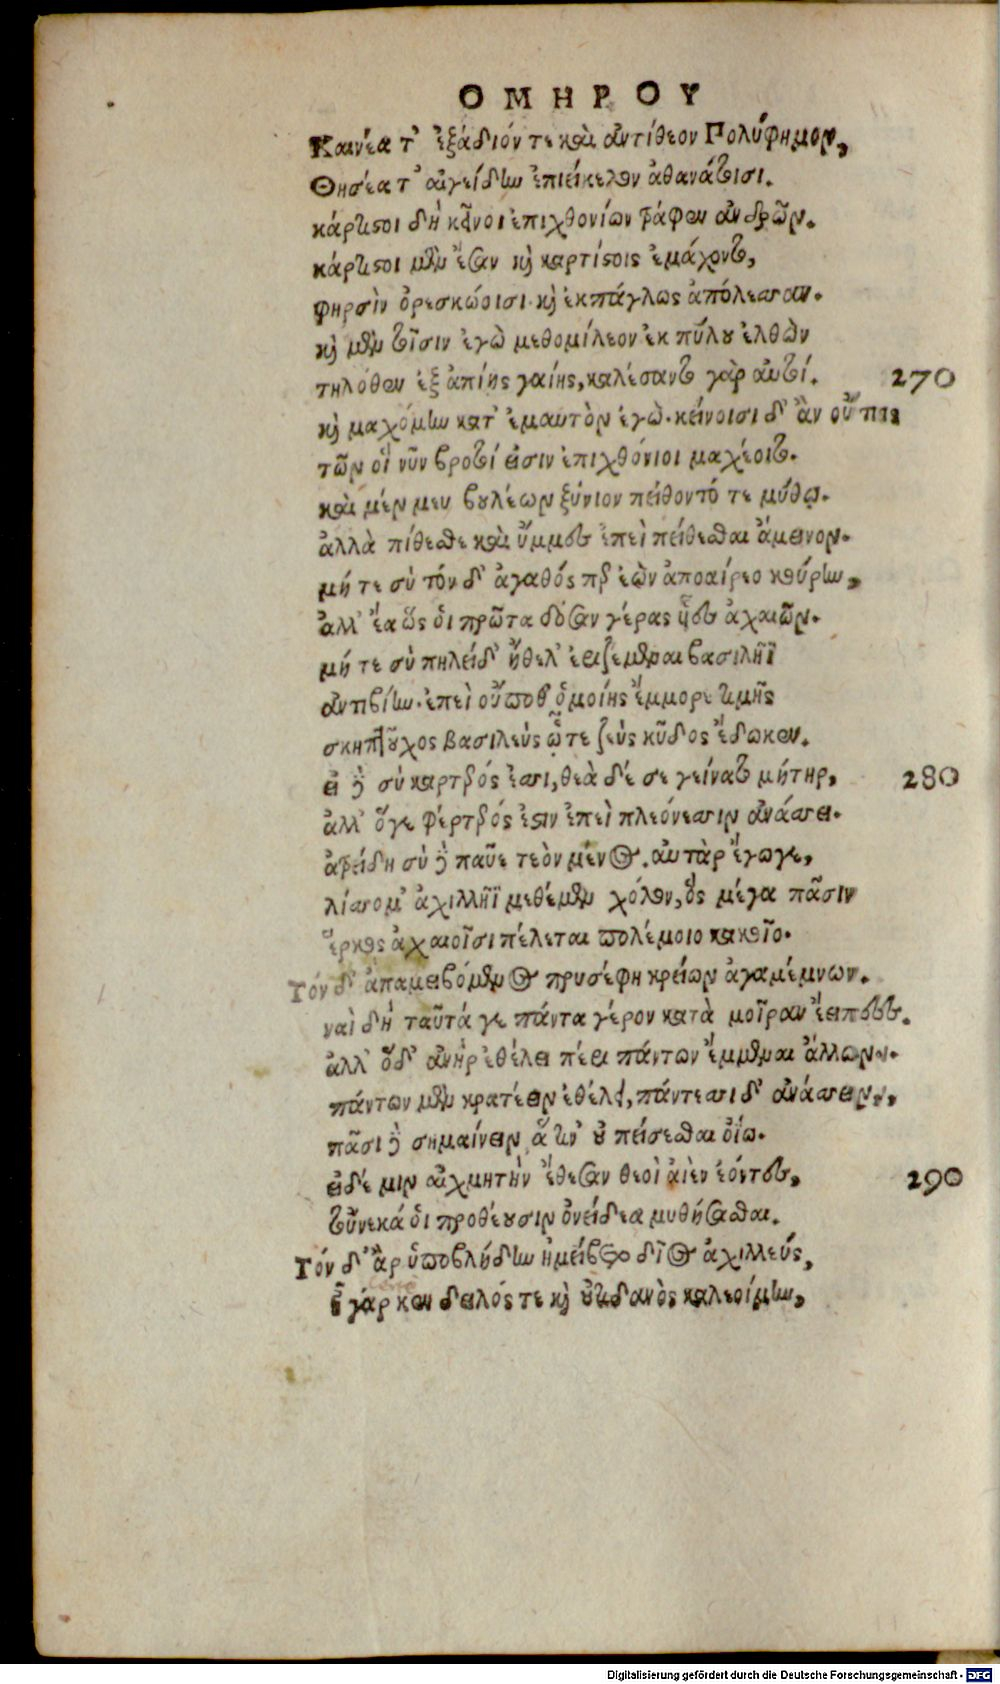 ΟΜΗΡΟΥ
Καινέα τ' ἐξάδιόν τε καὶ ἀντίθεον Πολύφημον,
Θησέα τ' αἰγείδην ἐπιείκελον ἀθανάτοισι.
κάρτιστοι δὴ κεῖνοι ἐπιχθονίων τράφεν ἀνδρῶν.
κάρτιστοι μὲν ἔσαν καὶ καρτίστοις ἐμάχοντο,
φηρσὶν ὀρεσκώοισι καὶ ἐκπάγλως ἀπόλεσσαν.
καὶ μὲν τοῖσιν ἐγὼ μεθομίλεον ἐκ πύλου ἐλθὼν
τηλόθεν ἐξ ἀπίης γαίης, καλέσαντο γὰρ αὐτοί. 270
καὶ μαχόμην κατ' ἐμαυτὸν ἐγὼ. κείνοισι δ' ἂν οὔ τις
τῶν οἳ νῦν βροτοί εἰσιν ἐπιχθόνιοι μαχέοιτο.
καὶ μέν μευ βουλέων ξύνιον πείθοντό τε μύθῳ.
ἀλλὰ πίθεσθε καὶ ὔμμες ἐπεὶ πείθεσθαι ἄμεινον.
μή τε σὺ τόν δ' ἀγαθός περ ἐὼν ἀποαίρεο κούρην,
ἀλλ' ἔα ὥς οἱ πρῶτα δόσαν γέρας υἷες ἀχαιῶν.
μή τε σὺ πηλείδ' ἤθελ' ἐριζέμεναι βασιλῆϊ
ἀντιβίην. ἐπεὶ οὔποθ' ὁμοίης ἔμμορε τιμῆς
σκηπτοῦχος βασιλεὺς ᾧτε ζεὺς κῦδος ἔδωκεν.
εἰ δὲ σὺ καρτερός ἐσσι, θεὰ δέ σε γείνατο μήτηρ, 280
ἀλλ' ὅγε φέρτερός ἐστιν ἐπεὶ πλεόνεσσιν ἀνάσσει.
ἀτρείδη σὺ δὲ παῦε τεὸν μένος. αὐτὰρ ἔγωγε,
λίσσομ' ἀχιλλῆϊ μεθέμεν χόλον, ὃς μέγα πᾶσιν
ἕρκος ἀχαιοῖσι πέλεται πολέμοιο κακοῖο.
Τόν δ' ἀπαμειβόμενος προσέφη κρείων ἀγαμέμνων.
ναὶ δὴ ταῦτά γε πάντα γέρον κατὰ μοῖραν ἔειπες.
ἀλλ' ὅδ' ἀνὴρ ἐθέλει πέρι πάντων ἔμμεναι ἄλλων.
πάντων μὲν κρατέειν ἐθέλει, πάντεσσι δ' ἀνάσσειν,
πᾶσι δὲ σημαίνειν, ἅ τιν' οὐ πείσεσθαι ὀΐω.
εἰ δέ μιν αἰχμητὴν ἔθεσαν θεοὶ αἰὲν ἐόντες, 290
τοὔνεκά οἱ προθέουσιν ὀνείδεα μυθήσασθαι.
Τόν δ' ἂρ ὑποβλήδην ἠμείβετο δῖος ἀχιλλεύς,
ἦ γάρ κεν δειλός τε καὶ οὐτιδανὸς καλεοίμην,
Digitalisierung gefördert durch die Deutsche Forschungsgemeinschaft - DFG